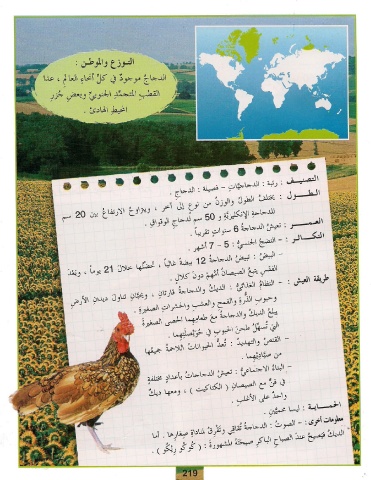 التـوزع والموطـن :
الدجاج موجودٌ في كلّ أنحاء العالم ، عدا
القطب المتجمّد الجنوبيّ وبعض جُزر
المحيط الهادئ .
التصنيـف : رتبة : الدجاجيّات - فصيلة : الدجاج .
الطــول : يختلف الطول والوزن من نوع إلى آخر ، ويتراوح الارتفاع بين 20 سم
للدجاجة الإنكليزيّة و 50 سم لدجاج الوقواق .
العمـــر : تعيش الدجاجة 6 سنوات تقريباً .
التكـاثـر : - النضج الجنسيّ : 5 - 7 أشهر .
- البيض : تبيض الدجاجة 12 بيضة غالباً ، تحضنها خلال 21 يوماً ، وبَعْدَ
الفقس يتبع الصيصان أمّهم دون كلال .
طريقة العيش : - النظام الغذائيّ : الديك والدجاجة قارتان ، ويحبّان تناول ديدان الأرض
وحبوب الذّرة والقمح والعشب والحشرات الصغيرة .
يبلع الديك والدجاجة مع طعامهما الحصى الصغيرة
التي تُسهّل طحن الحبوب في حوصلتهما .
- القنص والتهديد : تُعدُّ الحيوانات اللاحمة جميعُها
من صيّاديهما .
- البناء الاجتماعيّ : تعيش الدجاجات بأعداد مختلفةٍ
في قنّ مع الصيصان ( الكتاكيت ) ، ومعها ديكٌ
واحدٌ على الأغلب .
الحمـــايـة : ليسا محميَّين .
معلومات أخرى : - الصوت : الدجاجة تُقاقي وتقرق لمناداة صغارها . أما
الديك فيَصيح عند الصباح الباكر صيحتَهُ المشهورةَ : ( كُوكُو ريكُو ) .
219